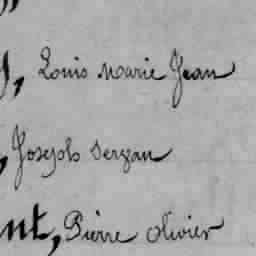 , Louis Marie Jean
, Joseph
nt, Pierre Olivier